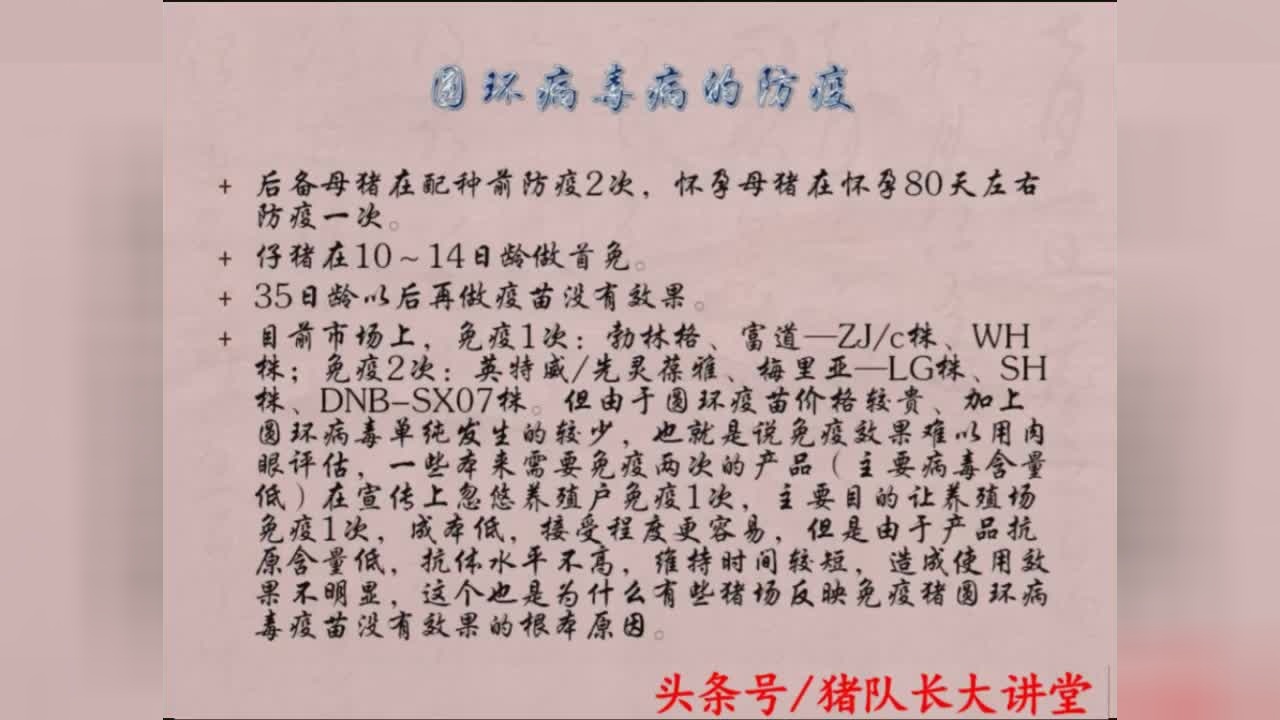 圆环病毒病的防疫
+ 后备母猪在配种前防疫2次，怀孕母猪在怀孕80天左右
防疫一次。
+ 仔猪在10～14日龄做首免。
+ 35日龄以后再做疫苗没有效果。
+ 目前市场上，免疫1次：勃林格、富道—ZJ/c株、WH
株；免疫2次：英特威/先灵葆雅、梅里亚—LG株、SH
株、DNB-SX07株。但由于圆环疫苗价格较贵、加上
圆环病毒单纯发生的较少，也就是说免疫效果难以用肉
眼评估，一些本来需要免疫两次的产品（主要病毒含量
低）在宣传上忽悠养殖户免疫1次，主要目的让养殖场
免疫1次，成本低，接受程度更容易，但是由于产品抗
原含量低，抗体水平不高，维持时间较短，造成使用效
果不明显，这个也是为什么有些猪场反映免疫猪圆环病
毒疫苗没有效果的根本原因。
头条号/猪队长大讲堂